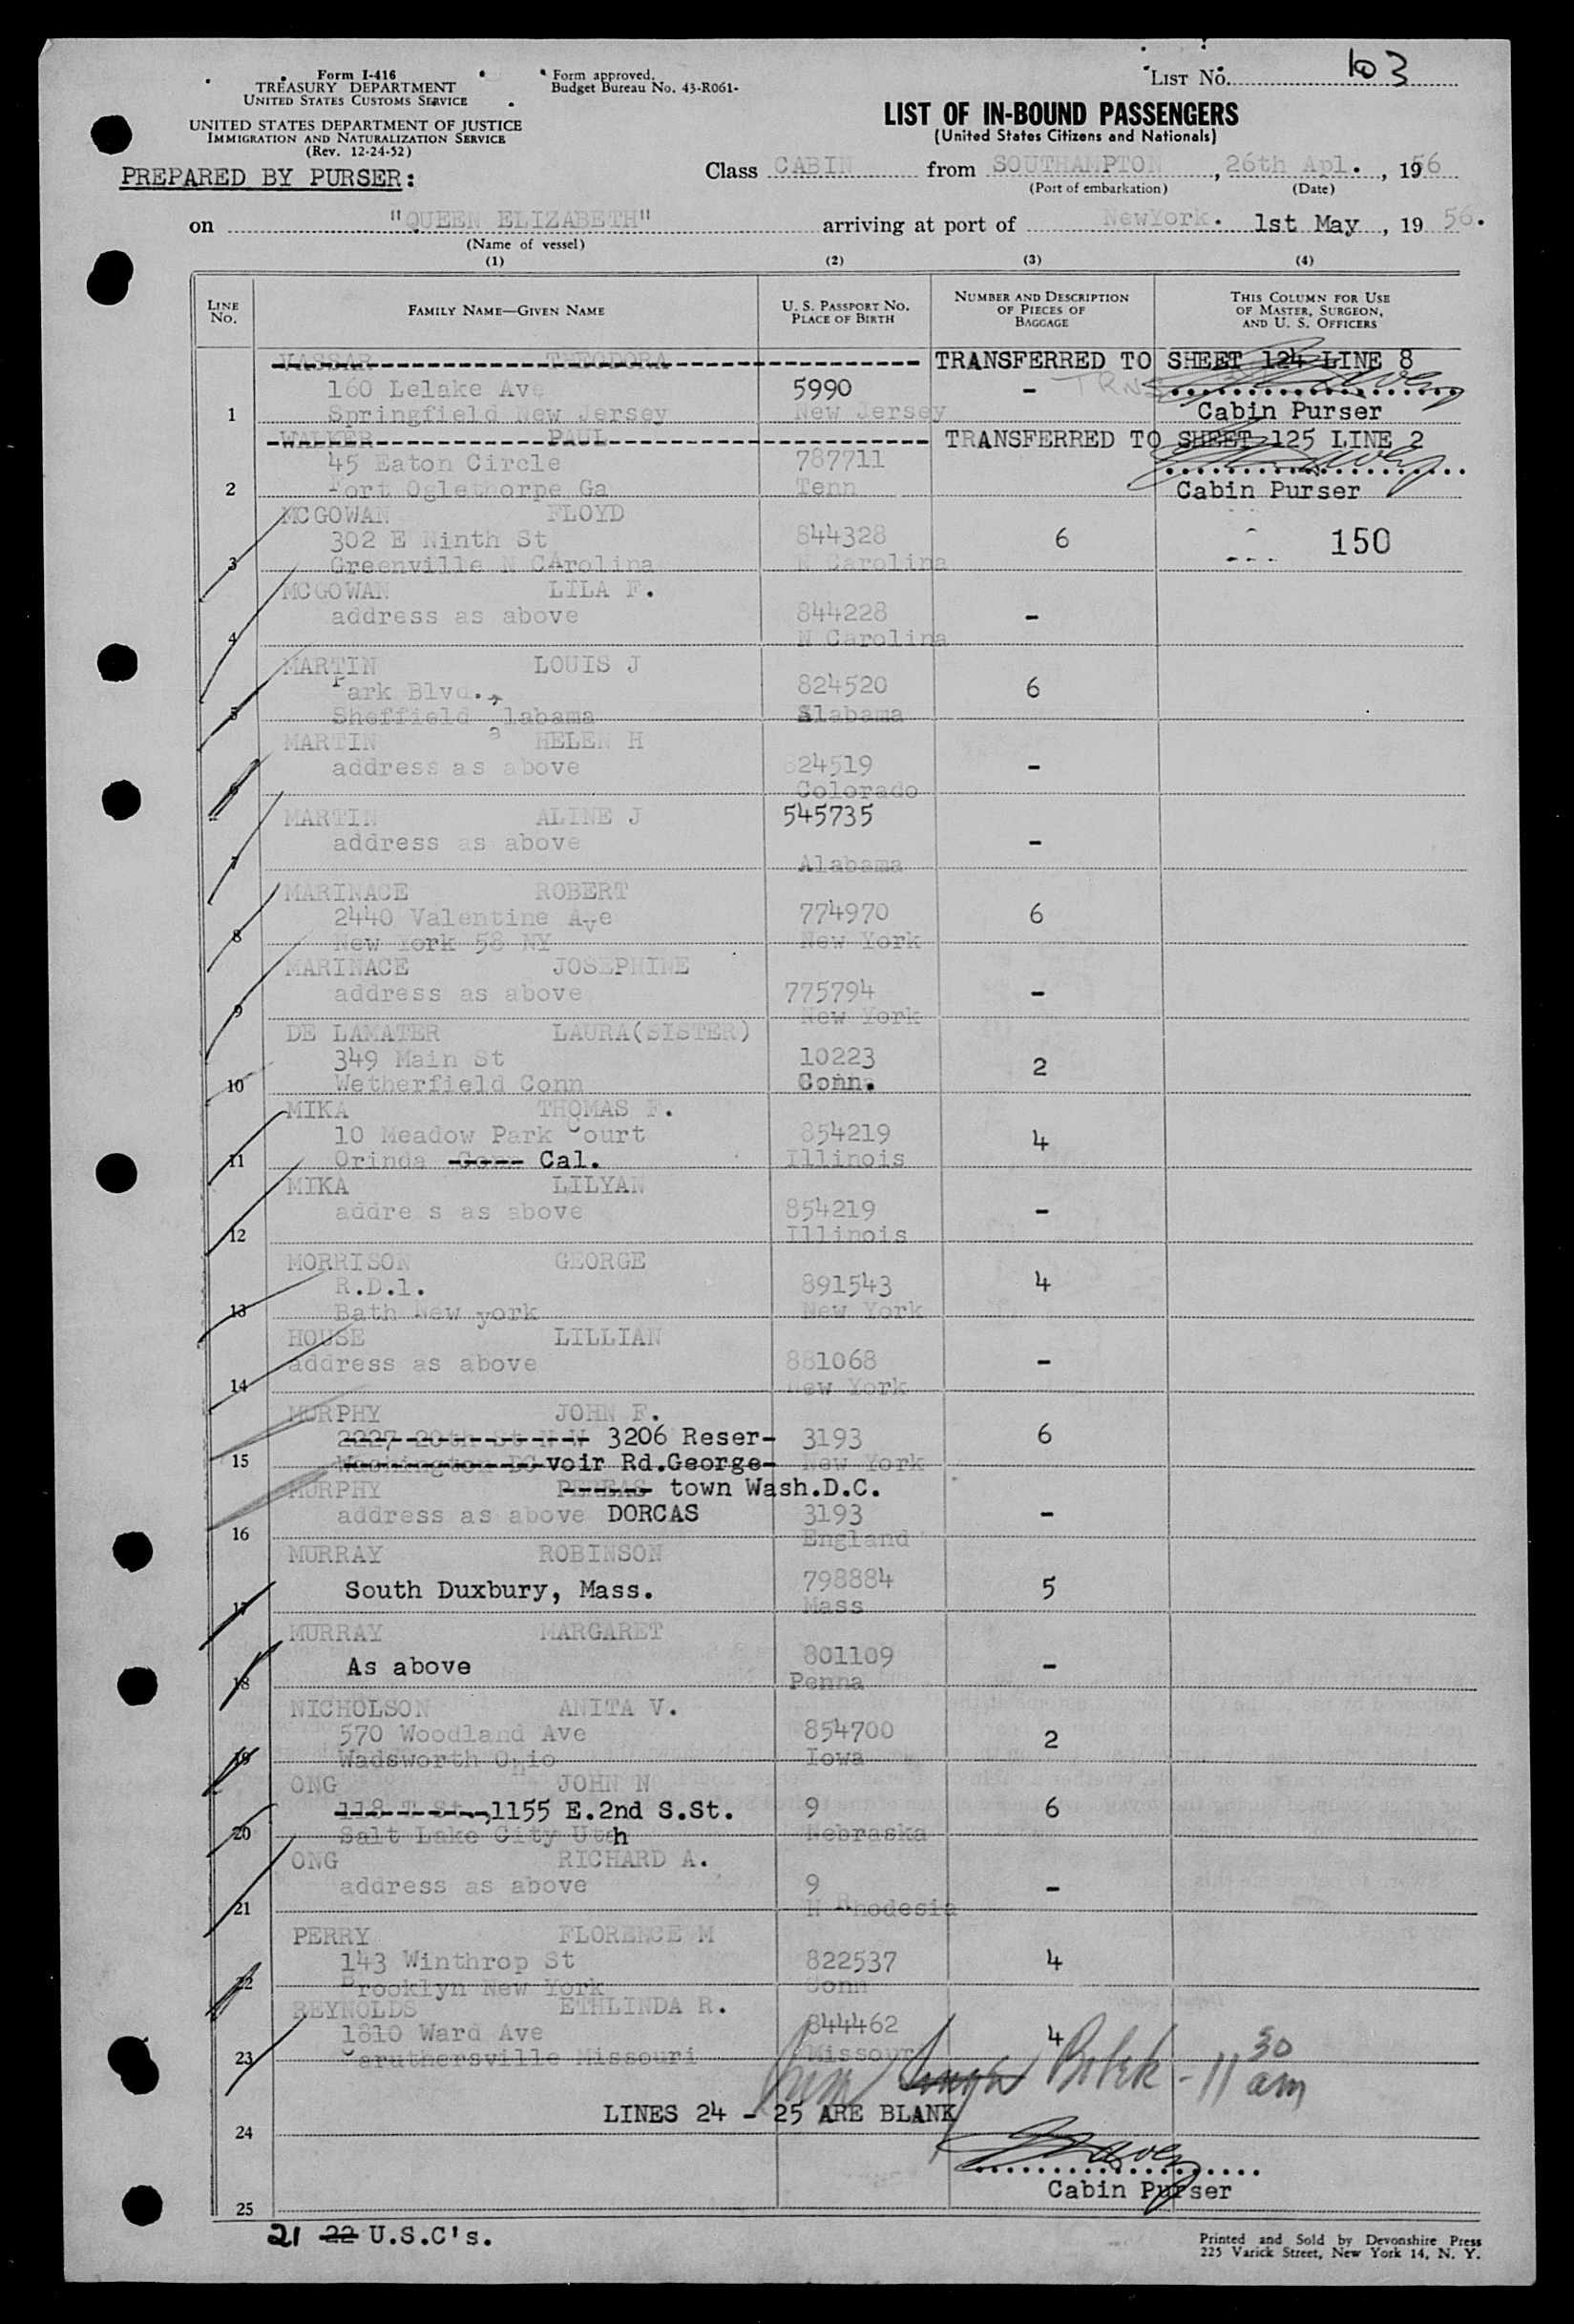 Form I-416
TREASURY DEPARTMENT
UNITED STATES CUSTOMS SERVICE
UNITED STATES DEPARTMENT OF JUSTICE
IMMIGRATION AND NATURALIZATION SERVICE
(Rev. 12-24-52)
PREPARED BY PURSER:
Form approved.
Budget Bureau No. 43-R061-
LIST NO. 103
LIST OF IN-BOUND PASSENGERS
(United States Citizens and Nationals)
Class CABIN from SOUTHAMPTON, 26th Apl., 1956
(Port of embarkation) (Date)
on "QUEEN ELIZABETH" arriving at port of NewYork. 1st May, 1956.
(Name of vessel)
(1) (2) (3) (4)
LINE NO.
FAMILY NAME—GIVEN NAME
U. S. PASSPORT NO. PLACE OF BIRTH
NUMBER AND DESCRIPTION OF PIECES OF BAGGAGE
THIS COLUMN FOR USE OF MASTER, SURGEON, AND U. S. OFFICERS
VASSAR THEODORA TRANSFERRED TO SHEET 124 LINE 8
160 Lelake Ave 5990 -
1 Springfield New Jersey New Jersey Cabin Purser
WALKER PAUL TRANSFERRED TO SHEET 125 LINE 2
45 Eaton Circle 787711
2 Fort Oglethorpe Ga Tenn Cabin Purser
MCGOWAN FLOYD
302 E Ninth St 844328 6 150
3 Greenville N CArolina N Carolina
MCGOWAN LILA F.
address as above 844228 -
4 N Carolina
MARTIN LOUIS J
Park Blvd. 824520 6
5 Sheffield alabama Alabama
MARTIN HELEN H
address as above 824519 -
6 Colorado
MARTIN ALINE J 545735
address as above -
7 Alabama
MARINACE ROBERT
2440 Valentine Ave 774970 6
8 New York 58 NY New York
MARINACE JOSEPHINE
address as above 775794 -
9 New York
DE LAMATER LAURA(SISTER)
349 Main St 10223 2
10 Wetherfield Conn Conn.
MIKA THOMAS F.
10 Meadow Park Court 854219 4
11 Orinda Conn Cal. Illinois
MIKA LILYAN
addre s as above 854219 -
12 Illinois
MORRISON GEORGE
R.D.1. 891543 4
13 Bath New york New York
HOUSE LILLIAN
address as above 881068 -
14 New York
MURPHY JOHN F.
2227 20th St N W 3206 Reser- 3193 6
15 Washington DC voir Rd.George- New York
MURPHY town Wash.D.C.
address as above DORCAS 3193 -
16 England
MURRAY ROBINSON
South Duxbury, Mass. 798884 5
17 Mass
MURRAY MARGARET
As above 801109 -
18 Penna
NICHOLSON ANITA V.
570 Woodland Ave 854700 2
19 Wadsworth Ohio Iowa
ONG JOHN N
118 T St 1155 E.2nd S.St. 9 6
20 Salt Lake City Utah Nebraska
ONG RICHARD A.
address as above 9 -
21 N Rhodesia
PERRY FLORENCE M
143 Winthrop St 822537 4
22 Brooklyn New York Conn
REYNOLDS ETHLINDA R.
1810 Ward Ave 844462 4
23 Caruthersville Missouri Missouri
11 30 am
LINES 24 - 25 ARE BLANK
24
Cabin Purser
25
21 22 U.S.C's.
Printed and Sold by Devonshire Press
225 Varick Street, New York 14, N. Y.